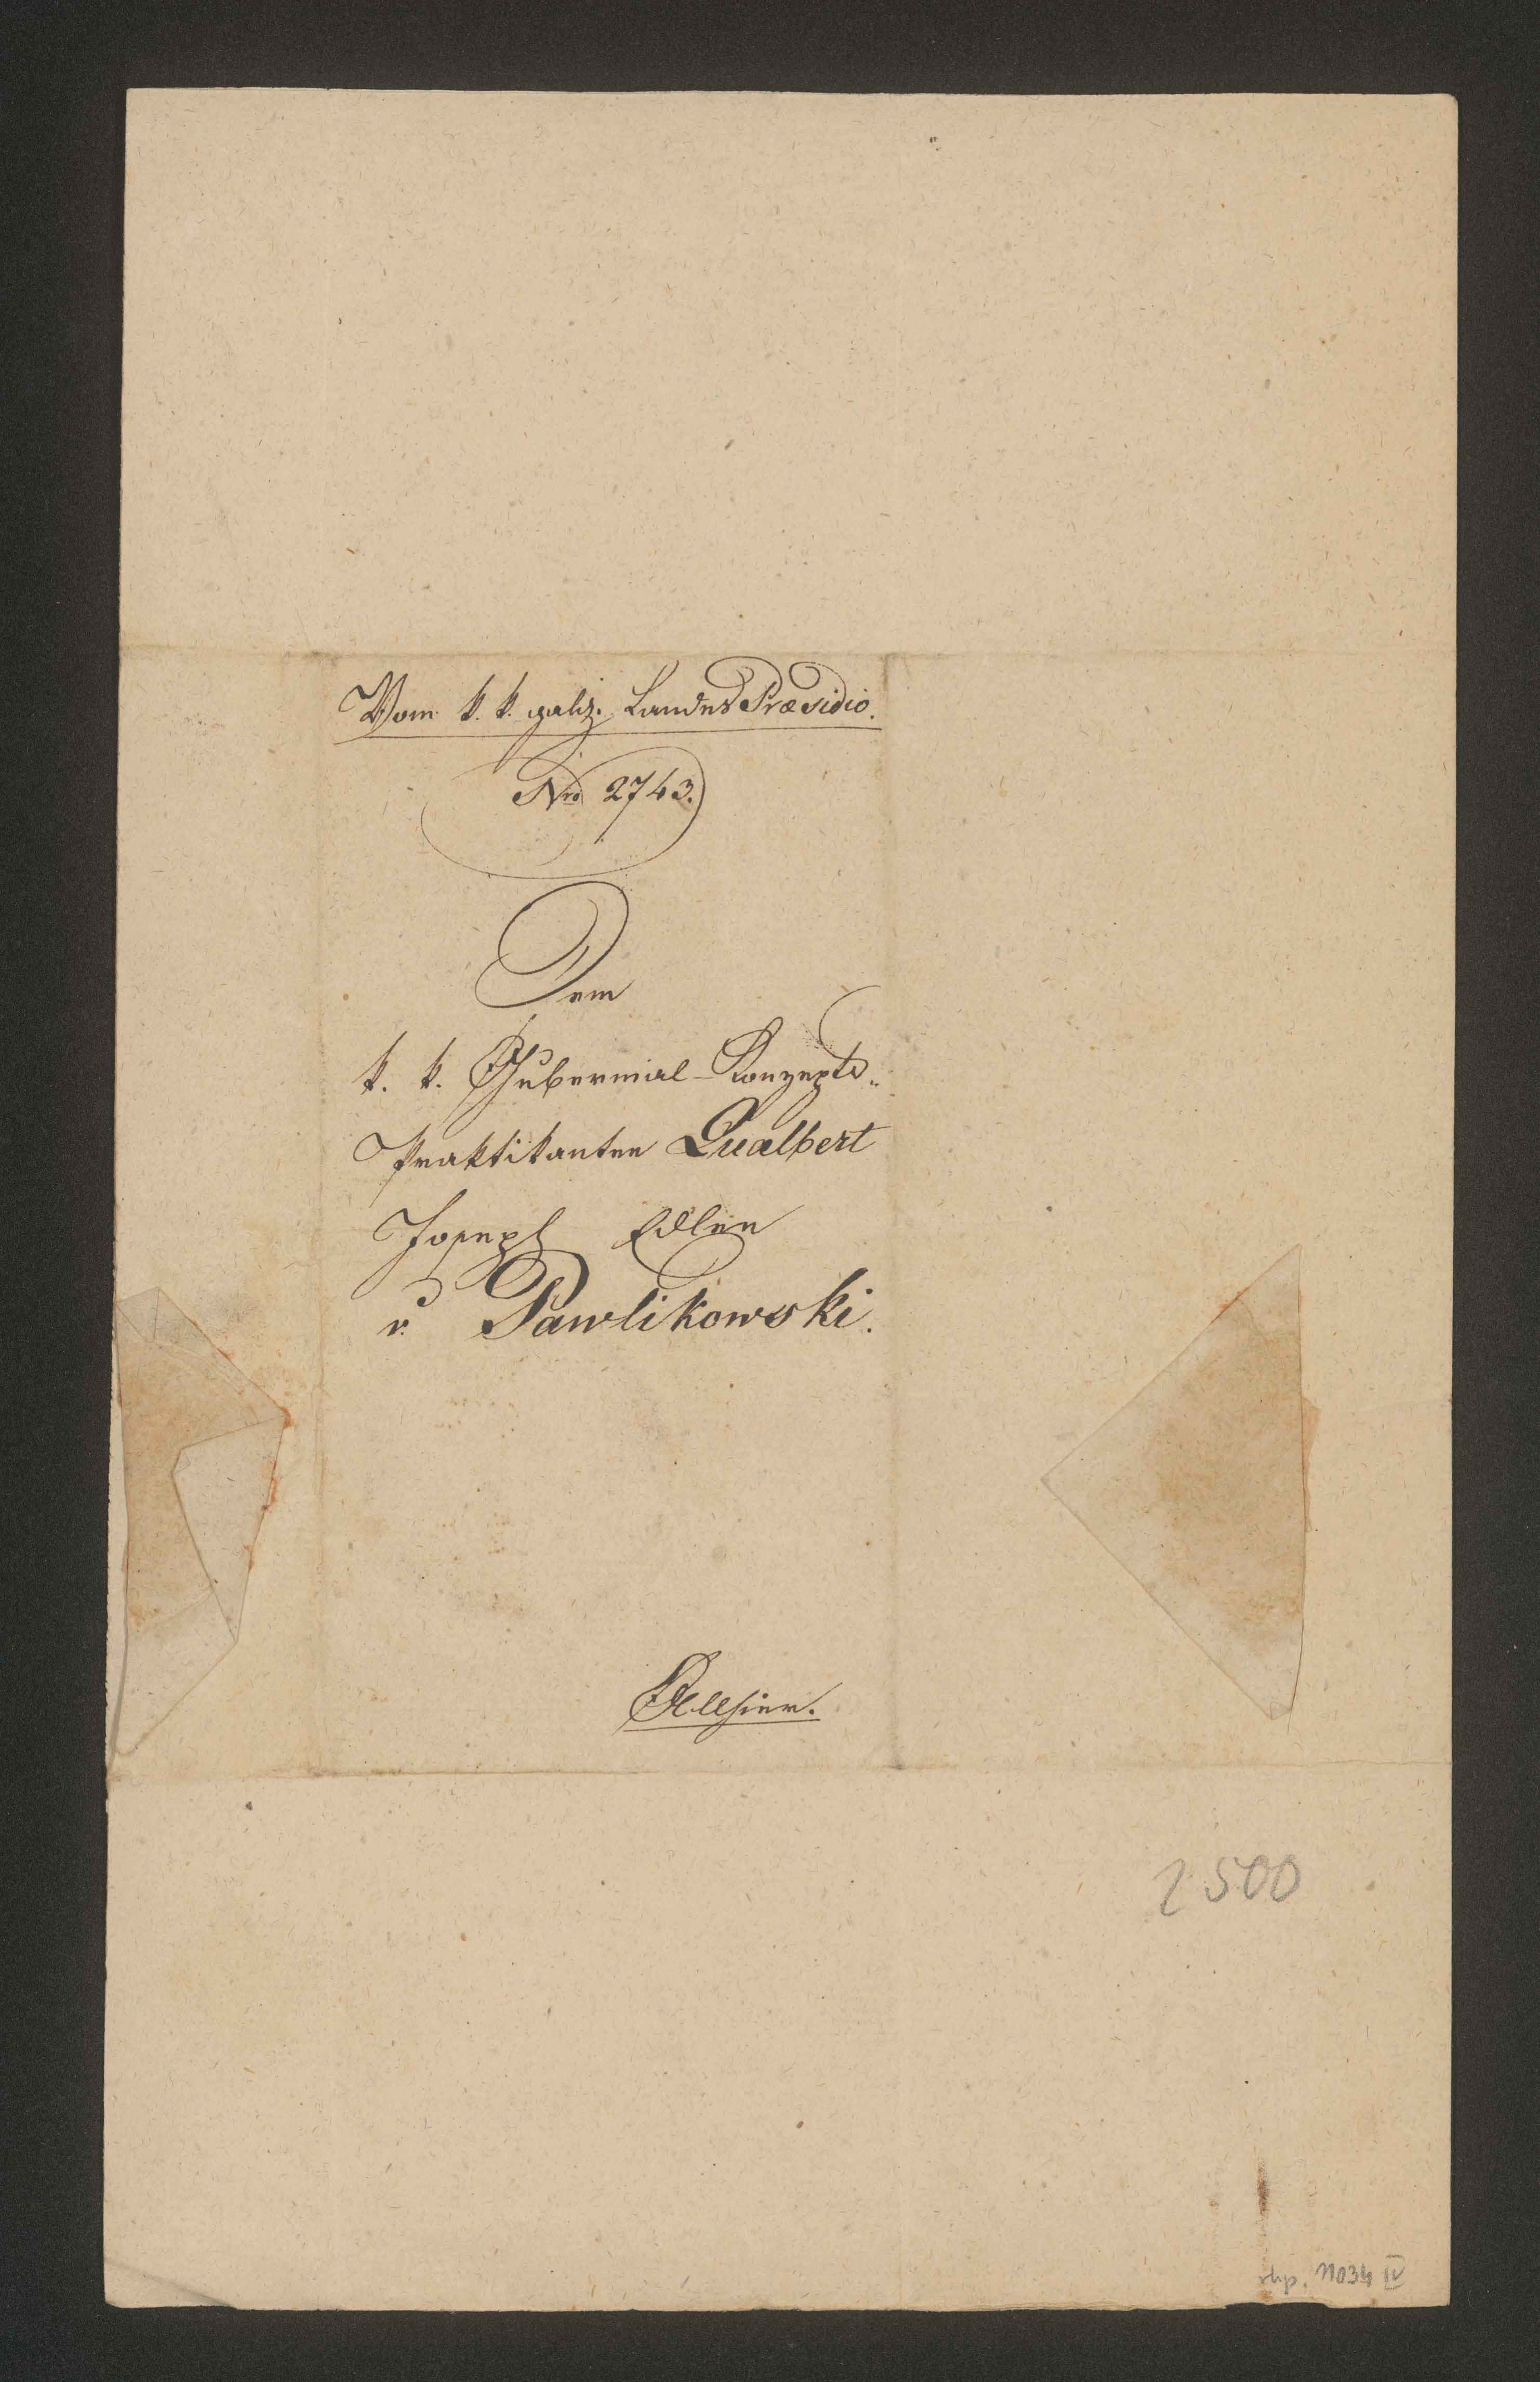 Vom k. k. galiz. Landes Præsidio.
Nro 2743.
Dem
k. k. Gubernial-Konzepts-
Praktikanten Gualbert
Joseph Edlen
v. Pawlikowski.
Allhier.
2500
akp. 11034 IV